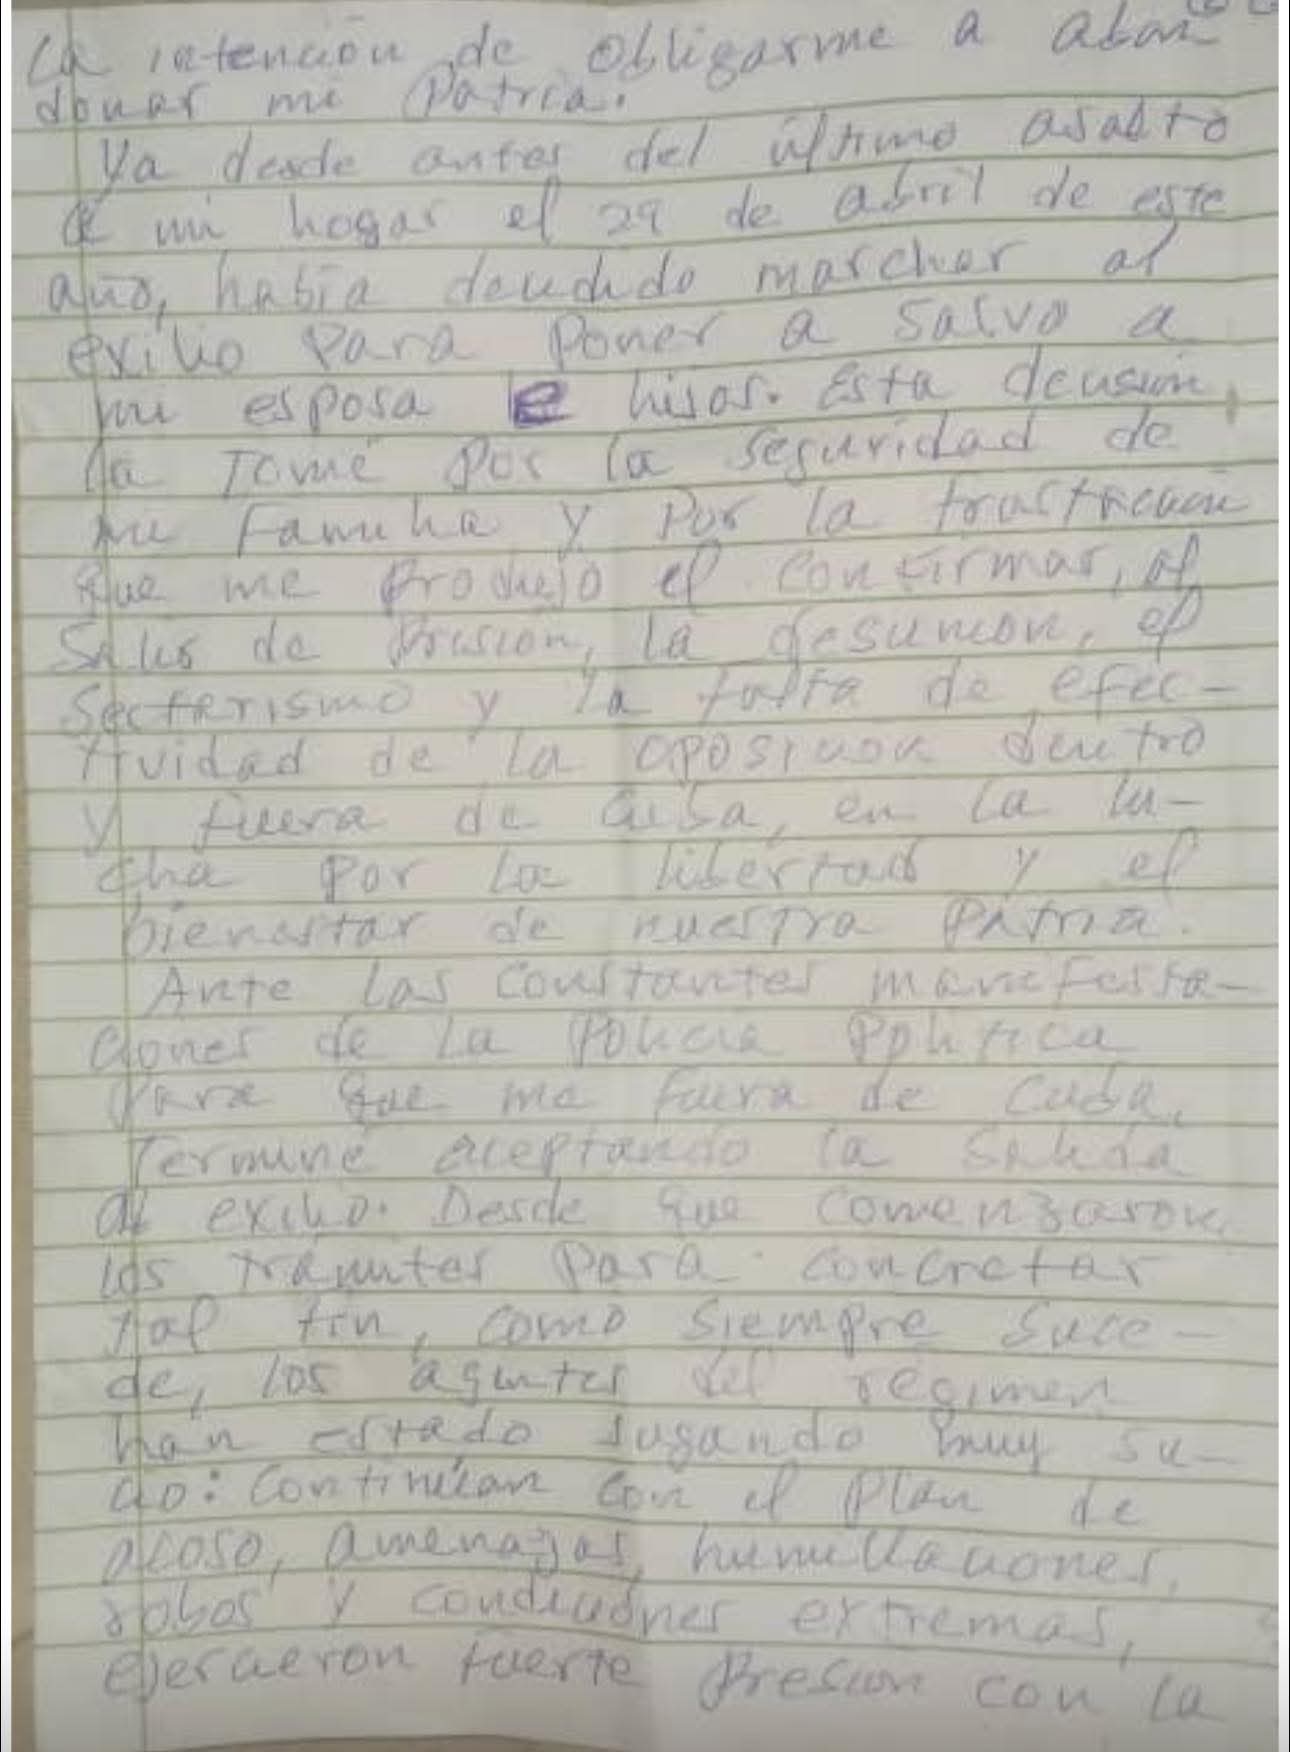 la intención de obligarme a aban
donar mi Patria.
Ya desde antes del último asalto
a mi hogar el 29 de abril de este
año, había decidido marchar al
exilio para poner a salvo a
mi esposa e hijos. Esta decisión,
la tomé por la seguridad de
mi familia y por la frustración
que me produjo el confirmar, al
salir de prisión, la desunión, el
secterismo y la falta de efec-
tividad de la oposición dentro
y fuera de Cuba, en la lu-
cha por la libertad y el
bienestar de nuestra Patria.
Ante las constantes manifesta-
ciones de la Policía Política
para que me fuera de Cuba,
terminé aceptando la salida
al exilio. Desde que comenzaron
los trámites para concretar
tal fin, como siempre suce-
de, los agentes del régimen
han estado jugando muy su-
cio: continúan con el plan de
acoso, amenazas, humillaciones,
robos y condiciones extremas,
ejercieron fuerte presión con la